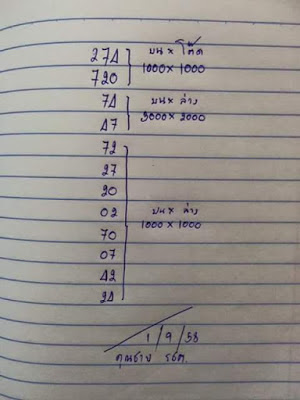 274 บน × โต๊ด
720 1000 × 1000
74 บน × ล่าง
47 2000 × 2000
72
27
20
02 บน × ล่าง
70 1000 × 1000
07
42
24
1/9/58